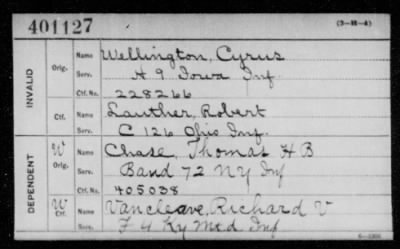 401127
(3-H-4)
INVALID
Orig.
Name Wellington, Cyrus
Serv. H 9 Iowa Inf.
Ctf. No. 228266
Ctf.
Name Lauther, Robert
Serv. C 126 Ohio Inf.
DEPENDENT
W Orig.
Name Chase, Thomas H B
Serv. Band 72 NY Inf
Ctf. No. 405038
W Ctf.
Name Vancleave, Richard V
Serv. F 4 Ky Mtd Inf